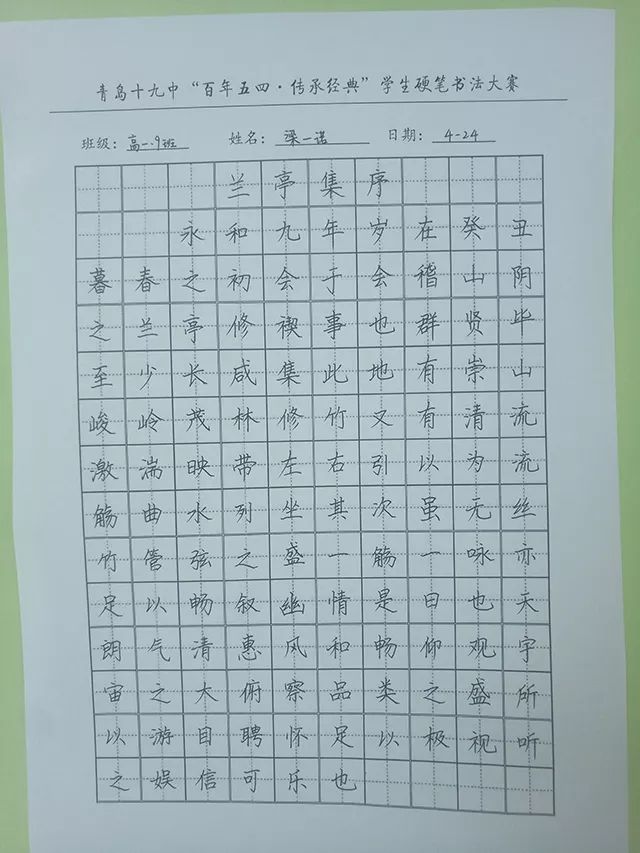 青岛十九中“百年五四·传承经典”学生硬笔书法大赛
班级：高一.9班 姓名：梁一诺 日期：4-24
兰亭集序
永和九年岁在癸丑
暮春之初会于会稽山阴
之兰亭修禊事也群贤毕
至少长咸集此地有崇山
峻岭茂林修竹又有清流
激湍映带左右引以为流
觞曲水列坐其次虽无丝
竹管弦之盛一觞一咏亦
足以畅叙幽情是日也天
朗气清惠风和畅仰观宇
宙之大俯察品类之盛所
以游目聘怀足以极视听
之娱信可乐也